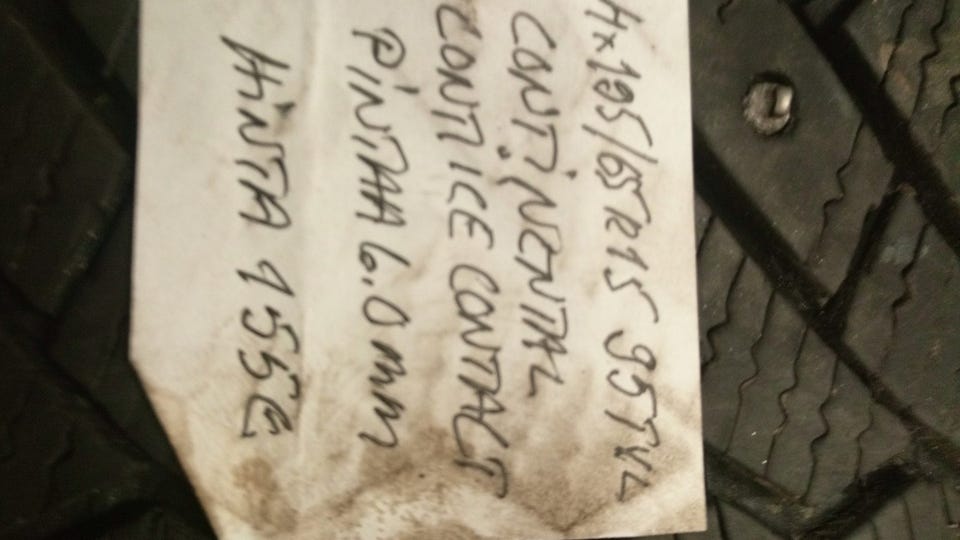 4x195/65R15 95T XL
CONTiNENTAL
CONTI ICE CONTACT
PiNTAA 6.0 mm
HiNTA 155€